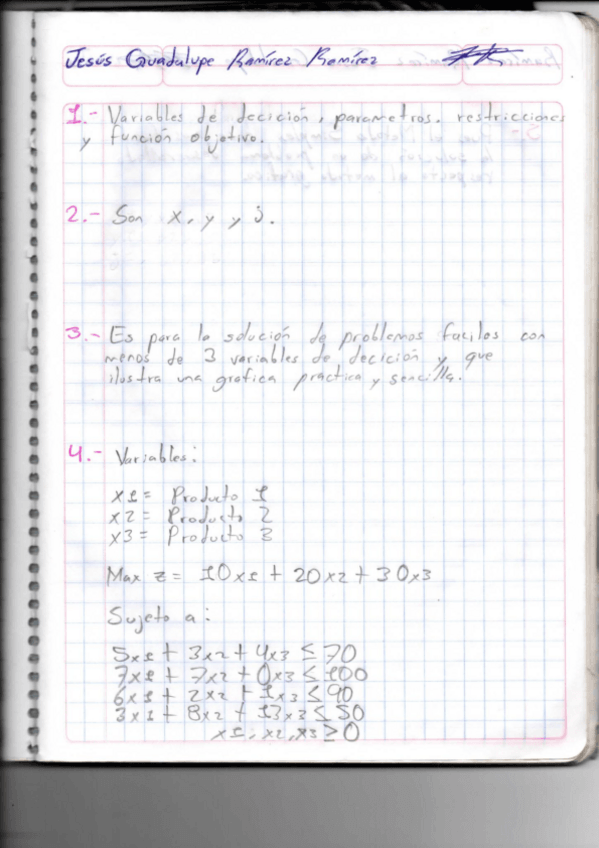 Jesús Guadalupe Ramírez Ramírez
1.- Variables de decición, parametros, restricciones
y función objetivo.
2.- Son x, y y j.
3.- Es para la solución de problemas faciles con
menos de 3 variables de decición y que
ilustra una grafica practica y sencilla.
4.- Variables:
x1 = Producto 1
x2 = Producto 2
x3 = Producto 3
Max z = 10x1 + 20x2 + 30x3
Sujeto a:
5x1 + 3x2 + 4x3 ≤ 70
7x1 + 7x2 + 0x3 ≤ 100
6x1 + 2x2 + 1x3 ≤ 90
3x1 + 8x2 + 13x3 ≤ 50
x1, x2, x3 ≥ 0